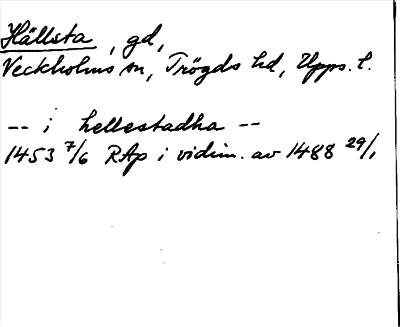 Hällsta, gd,
Veckholms sn, Trögds hd, Upps. l.
-- i hellestadha --
1453 7/6 RAp i vidim. av 1488 29/1